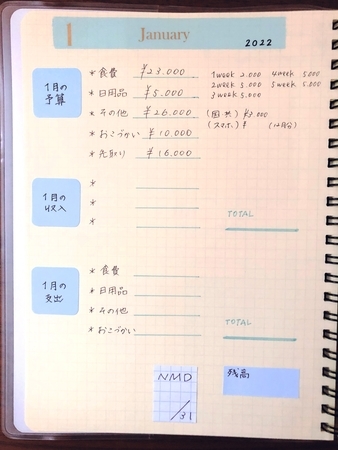 1 January 2022
1月の予算
* 食費 ¥23.000 1week 2.000 4week 5.000
* 日用品 ¥5.000 2week 5.000 5week 5.000
3week 5.000
* その他 ¥26.000 (スマホ) ¥ (12月分)
* おこづかい ¥10.000
* 先取り ¥16.000
1月の収入
*
*
* TOTAL
1月の支出
* 食費
* 日用品
* その他
* おこづかい TOTAL
NMD
/31
残高